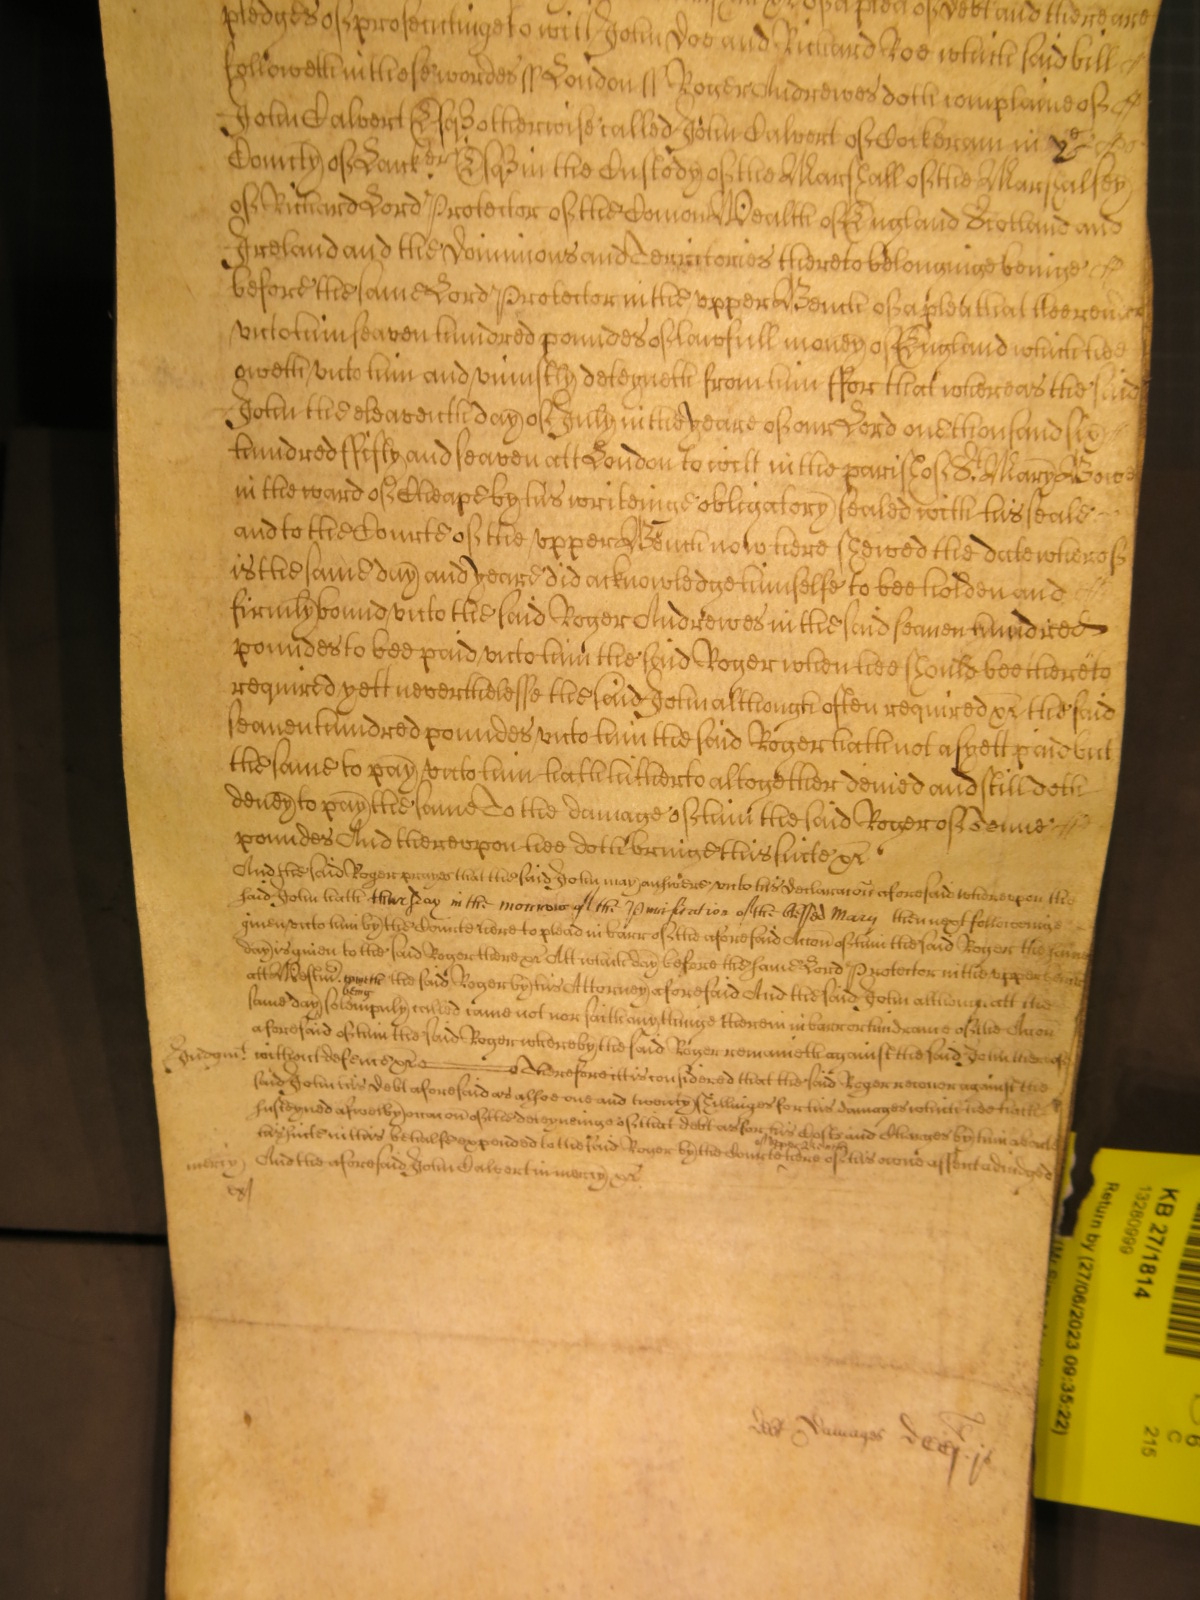 pledges of prosecutinge to witt John Doe and Richard Roe which said bill
followeth in these wordes ss London ss Roger Andrewes doth complaine of
John Calvert Esq otherwise called John Calvert of Cockeram in ye
County of Lanker Esq in the Custody of the Marshall of the Marshalsey
of Richard Lord Protector of the Comon Wealth of England Scotland and
Ireland and the Dominions and Territories thereto belonginge beinge
before the same Lord Protector in the upper Bench of a plea that hee render
unto him seaven hundred poundes of lawfull money of England which hee
oweth unto him and uniustly deteyneth from him ffor that whereas the said
John the eleaventh day of July in the yeare of our Lord one thousand six
hundred ffifty and seaven att London to witt in the parish of St Mary Bowe
in the ward of Cheape by his writeinge obligatory sealed with his seale
and to the Courte of the upper Bench now here shewed the date wherof
is the same day and yeare did acknowledge himselfe to bee holden and
firmly bound unto the said Roger Andrewes in the said seaven hundred
poundes to bee paid unto him the said Roger when hee should bee thereto
required yett neverthelesse the said John although often required xc the said
seaven hundred poundes unto him the said Roger hath not as yett paid but
the same to pay unto him hath hitherto altogether denied and still doth
deney to pay the same To the damage of him the said Roger of Tenne
poundes And thereupon hee doth bringe this suite xc
And the said Roger prayes that the said John may answere unto his declaracon aforesaid whereupon the
said John hath thursday in the morrow of the Purification of the blessed Mary then next followeinge
given unto him by the Courte here to plead in barr of the aforesaid Accon of him the said Roger the same
day is given to the said Roger there xc Att which day before the same Lord Protector in the upper Bench
att Westmr. cometh the said Roger by his Attorney aforesaid And the said John although att the
being
same day solempnly called came not nor saith any thinge therein in barr or hindrance of the Accon
aforesaid of him the said Roger whereby the said Roger remaineth against the said John thereof
Judgmt. without defence xc Therefore itt is considered that the said Roger recover against the
said John his debt aforesaid as alsoe one and twenty shillinges for his damages which hee hath
susteyned aswell by occacon of the deteyneinge of that debt as for his Costs and Charges by him about
his suite in this behalfe expended to the said Roger by the Courte here of his owne assent adiudged
mercy And the aforesaid John Calvert in mercy xc
Debt Damages
KB 27/1814
13280999
Return by (27/06/2023 09:35:22)
C
215